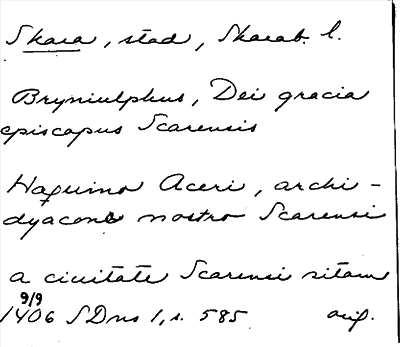 Skara, stad, Skarab. l.
Bryniulphus, Dei gracia
episcopus Scarensis
Haquino Aceri, archi-
dyacono nostro Scarensi
a ciuitate Scarensi sitam
9/9
1406 SDns 1, s. 585 orig.